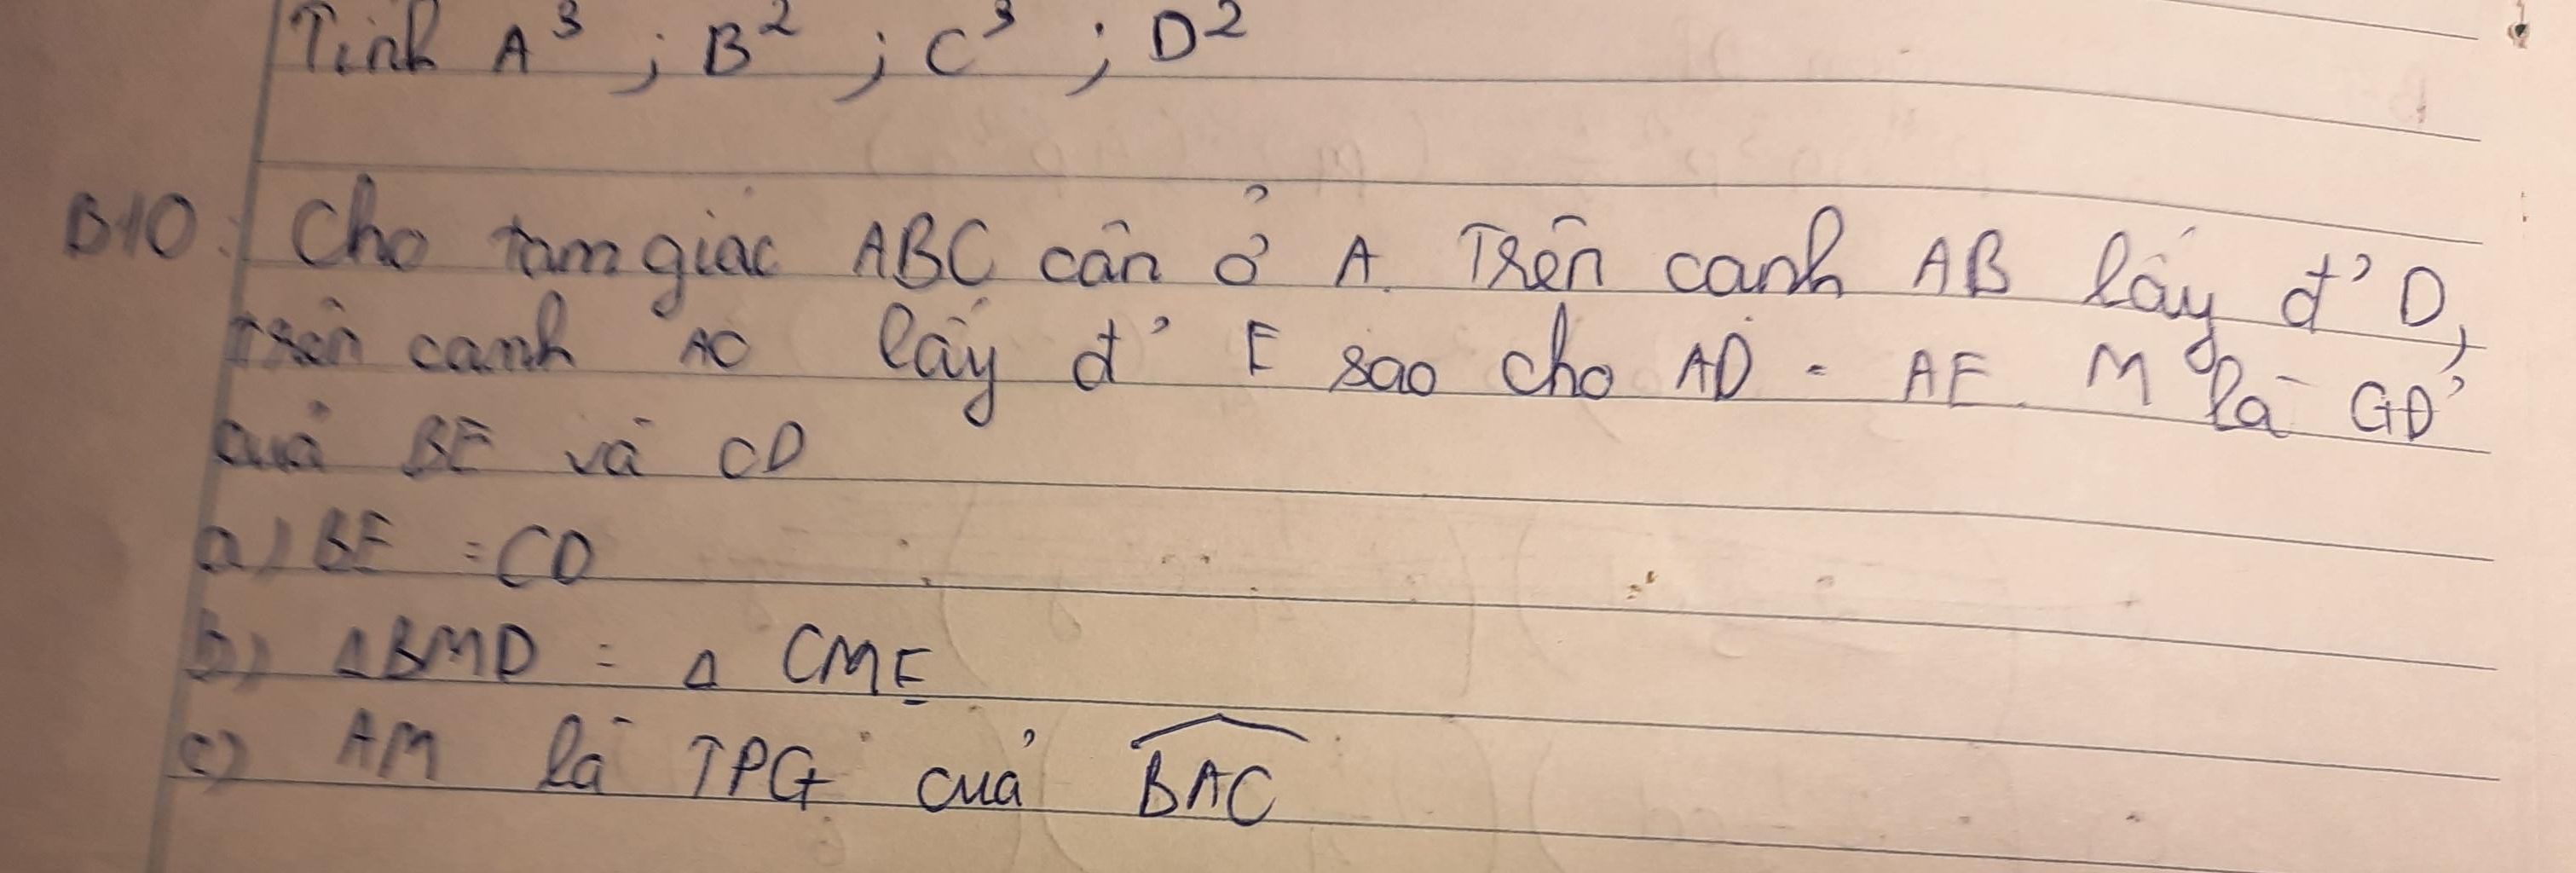 Tính A³ ; B² ; C³ ; D²
B10: Cho tam giác ABC cân ở A. Trên cạnh AB lấy đ' D,
trên cạnh AC lấy đ' E sao cho AD = AE. M là GĐ'
của BE và CD
a) BE = CD
b) ΔBMD = Δ CME
c) AM là TPG của \widehat{BAC}